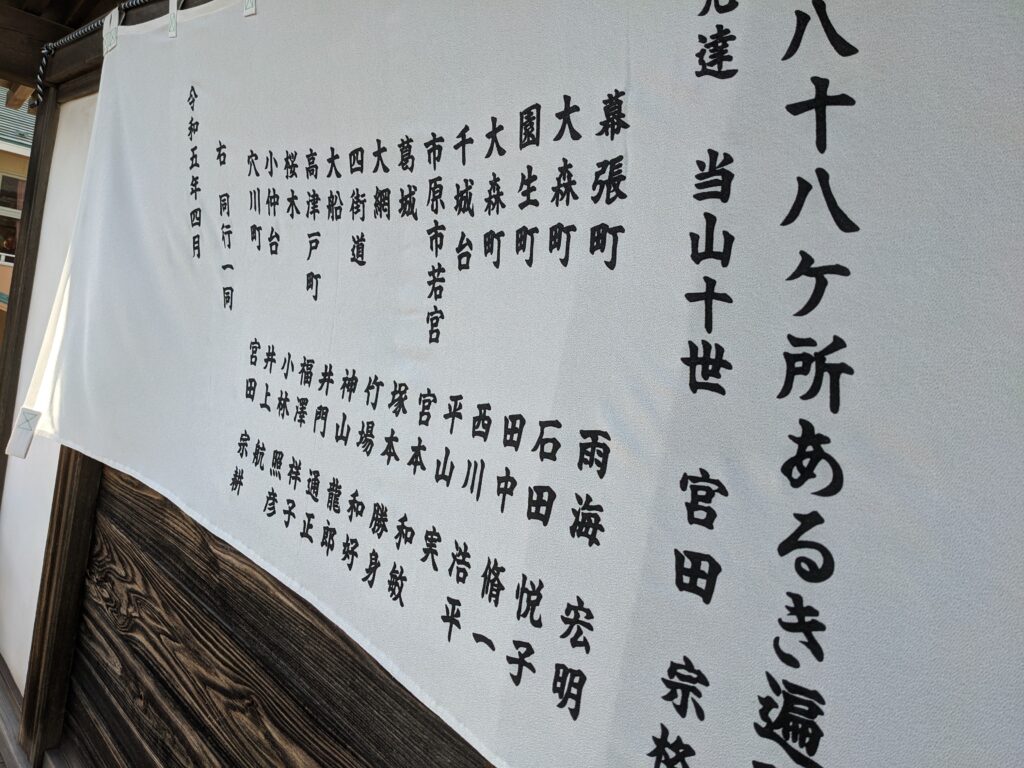 八十八ケ所あるき遍
先達 当山十世 宮田 宗格
幕張町 雨海 宏明
大森町 石田 悦子
園生町 田中 脩一
大森町 西川 浩平
千城台 平山 実
市原市若宮 宮本 和敏
葛城 塚本 勝身
大網 竹場 和好
四街道 神山 龍郎
大船 井門 通正
高津戸町 福澤 祥子
桜木 小林 照彦
小仲台 井上 航
穴川町 宮田 宗耕
右 同行一同
令和五年四月